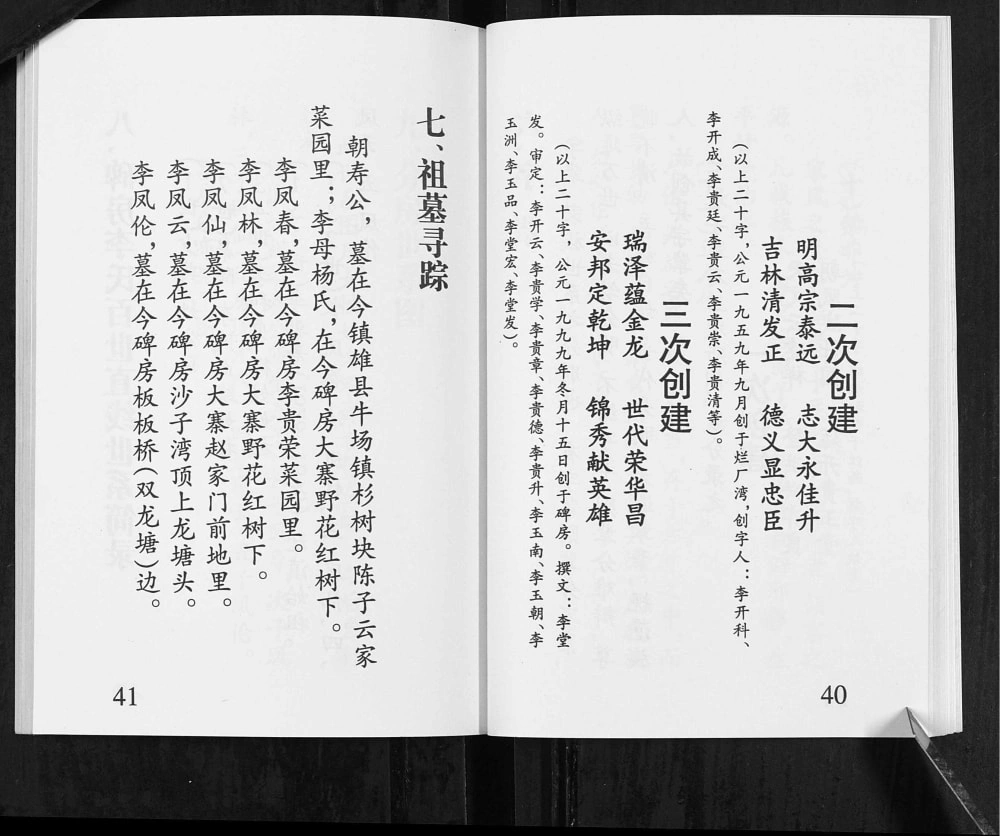 二次创建
明高宗泰远 志大永佳升
吉林清发正 德义显忠臣
（以上二十字，公元一九五九年九月创于烂厂湾，创字人：李开科、
李开成、李贵廷、李贵云、李贵崇、李贵清等）。
三次创建
瑞泽蕴金龙 世代荣华昌
安邦定乾坤 锦秀献英雄
（以上二十字，公元一九九九年冬月十五日创于碑房。撰文：李堂
发。审定：李开云、李贵学、李贵章、李贵德、李贵升、李玉南、李玉朝、李
玉洲、李玉品、李堂宏、李堂发）。
40
七、祖墓寻踪
朝寿公，墓在今镇雄县牛场镇杉树块陈子云家
菜园里；李母杨氏，在今碑房大寨野花红树下。
李凤春，墓在今碑房李贵荣菜园里。
李凤林，墓在今碑房大寨野花红树下。
李凤仙，墓在今碑房大寨赵家门前地里。
李凤云，墓在今碑房沙子湾顶上龙塘头。
李凤伦，墓在今碑房板板桥（双龙塘）边。
41